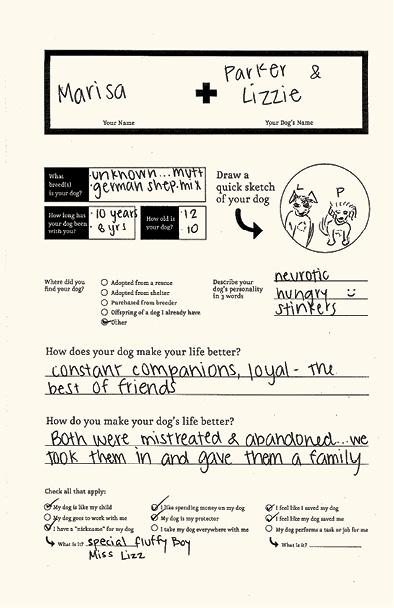 Marisa + Parker &
Lizzie
Your Name Your Dog's Name
What breed(s) is your dog? · unknown... mutt
· german shep. mix
How long has your dog been with you? · 10 years · 8 yrs How old is your dog? · 12 · 10
Draw a
quick sketch
of your dog
L P
Where did you
find your dog?
Adopted from a rescue
Adopted from shelter
Purchased from breeder
Offspring of a dog I already have
Other
Describe your
dog's personality
in 3 words
neurotic
hungry :)
stinkers
How does your dog make your life better?
constant companions, loyal - the
best of friends
How do you make your dog's life better?
Both were mistreated & abandoned...we
took them in and gave them a family
Check all that apply:
My dog is like my child
My dog goes to work with me
I have a "nickname" for my dog
What is it? special fluffy Boy
Miss Lizz
I like spending money on my dog
My dog is my protector
I take my dog everywhere with me
I feel like I saved my dog
I feel like my dog saved me
My dog performs a task or job for me
What is it?